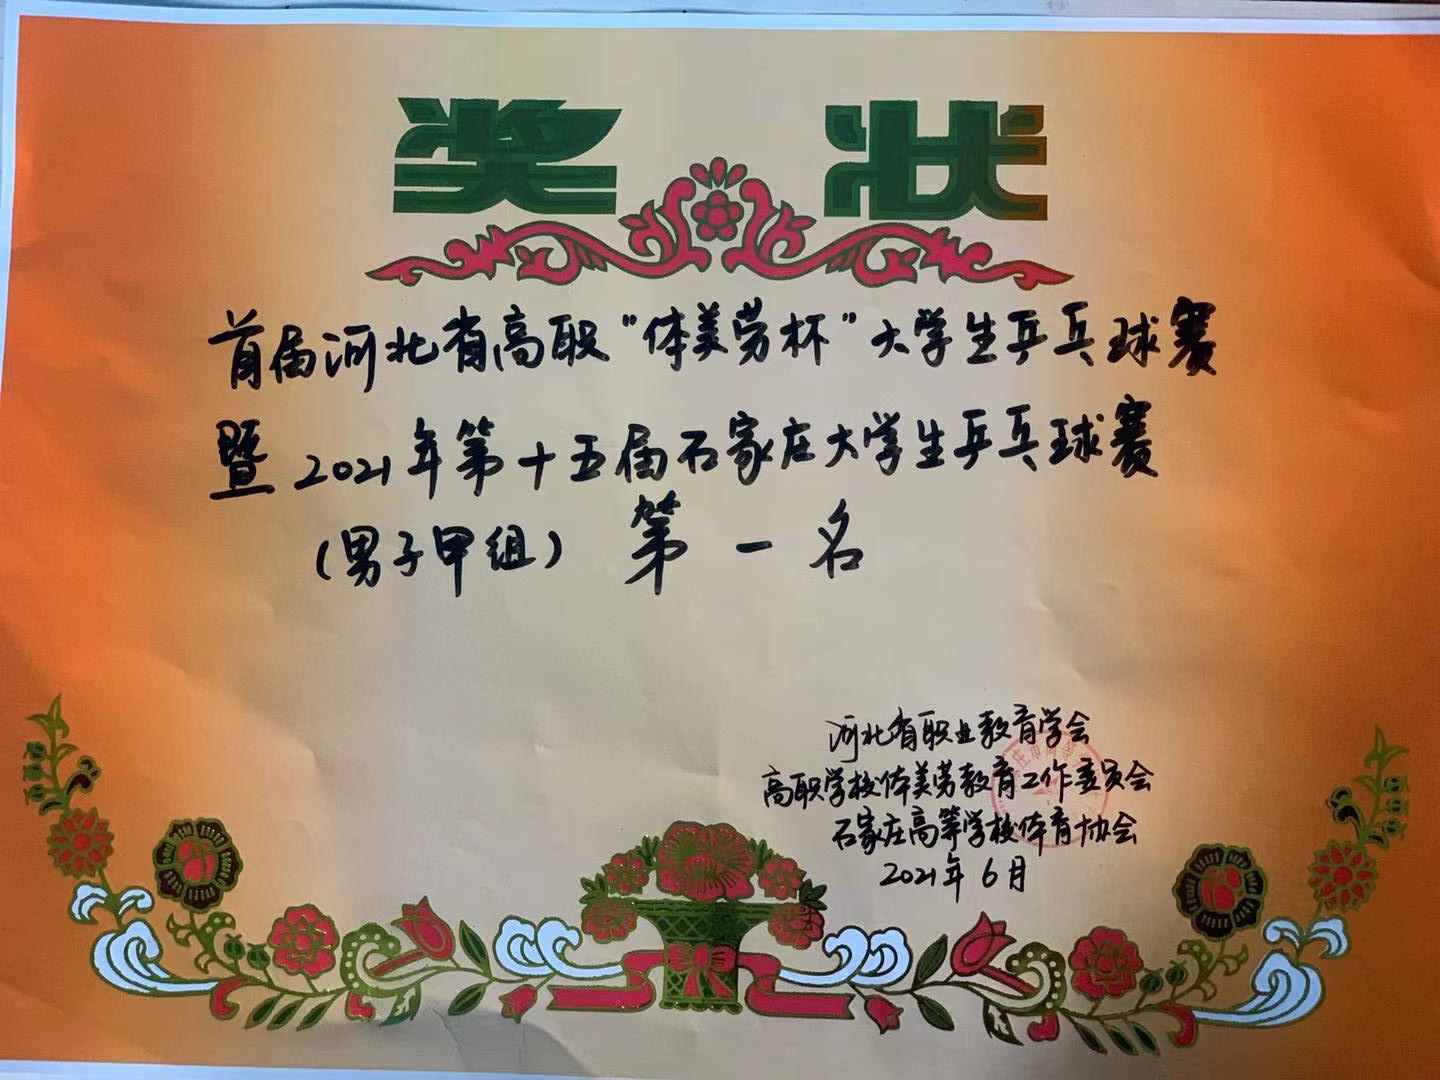 奖状
首届河北省高职“体美劳杯”大学生乒乓球赛
暨2021年第十五届石家庄大学生乒乓球赛
(男子甲组) 第一名
河北省职业教育学会
高职学校体美劳教育工作委员会
石家庄高等学校体育协会
2021年6月